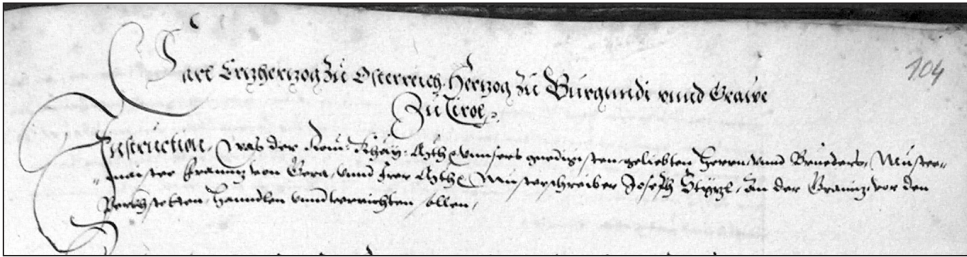 104
Carl Ertzhertzog zu Österreich Hertzog zu Burgundi vnnd Grave
Zu Tirol
Instruction, was der Röm: Khay: Mt: vnnsers genedigisten geliebten Herrn vnnd Brueders, Muster-
maister Frannz von Gera, vnnd Irer Mt: Musterschreiber Joseph an der Gräniz vor den
hanndlen vnnd verrichten sollen,